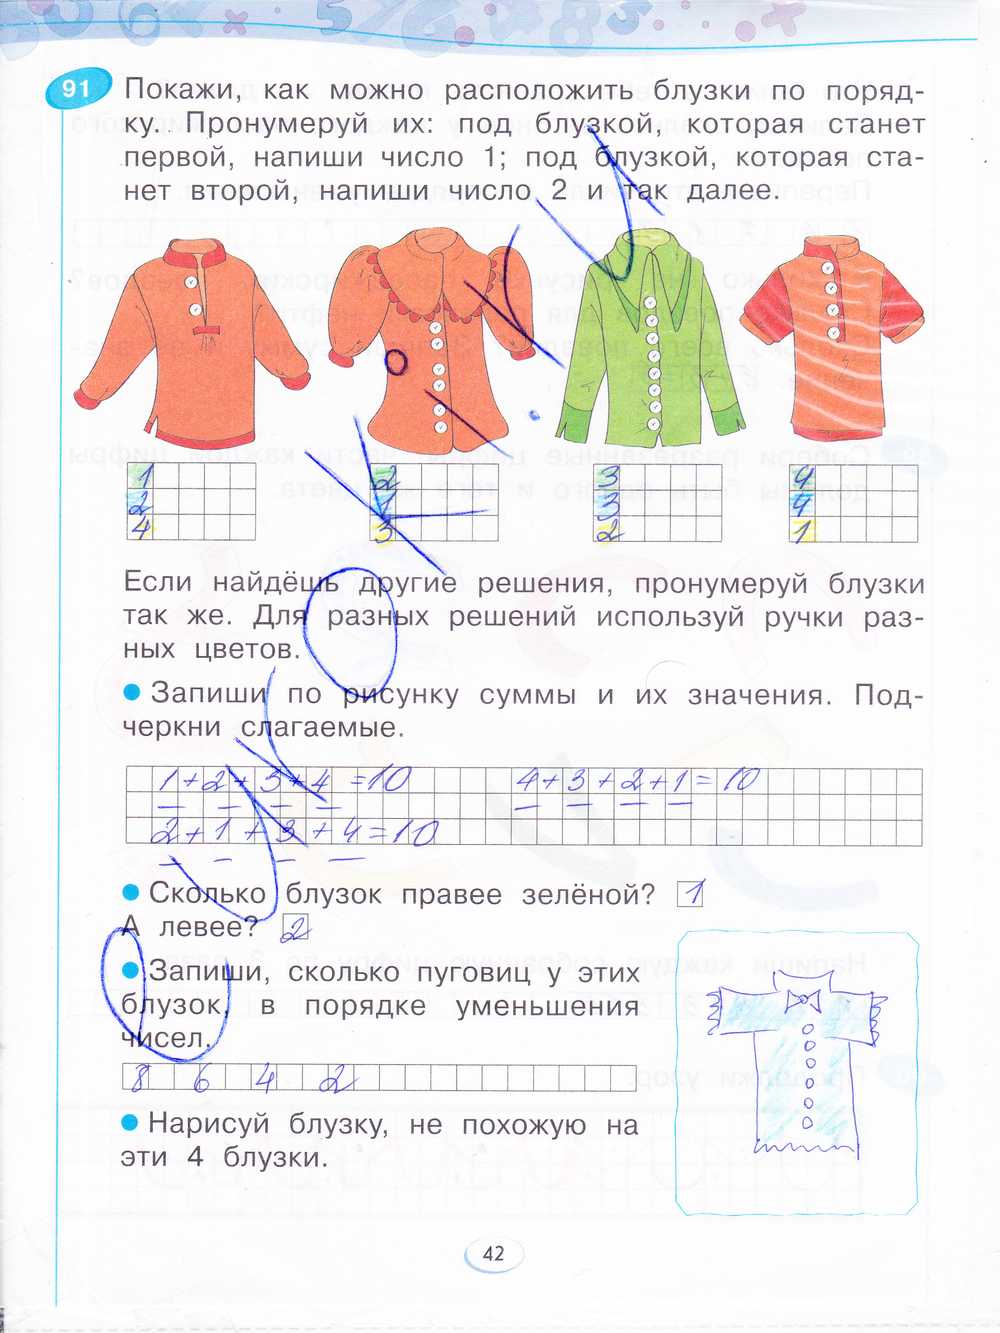 91 Покажи, как можно расположить блузки по поряд-
ку. Пронумеруй их: под блузкой, которая станет
первой, напиши число 1; под блузкой, которая ста-
нет второй, напиши число 2 и так далее.
1 2 3 4
2 1 3 4
4 3 2 1
Если найдёшь другие решения, пронумеруй блузки
так же. Для разных решений используй ручки раз-
ных цветов.
Запиши по рисунку суммы и их значения. Под-
черкни слагаемые.
1+2+3+4=10 4+3+2+1=10
2+1+3+4=10
Сколько блузок правее зелёной? 1
А левее? 2
Запиши, сколько пуговиц у этих
блузок, в порядке уменьшения
чисел.
8 6 4 2
Нарисуй блузку, не похожую на
эти 4 блузки.
42